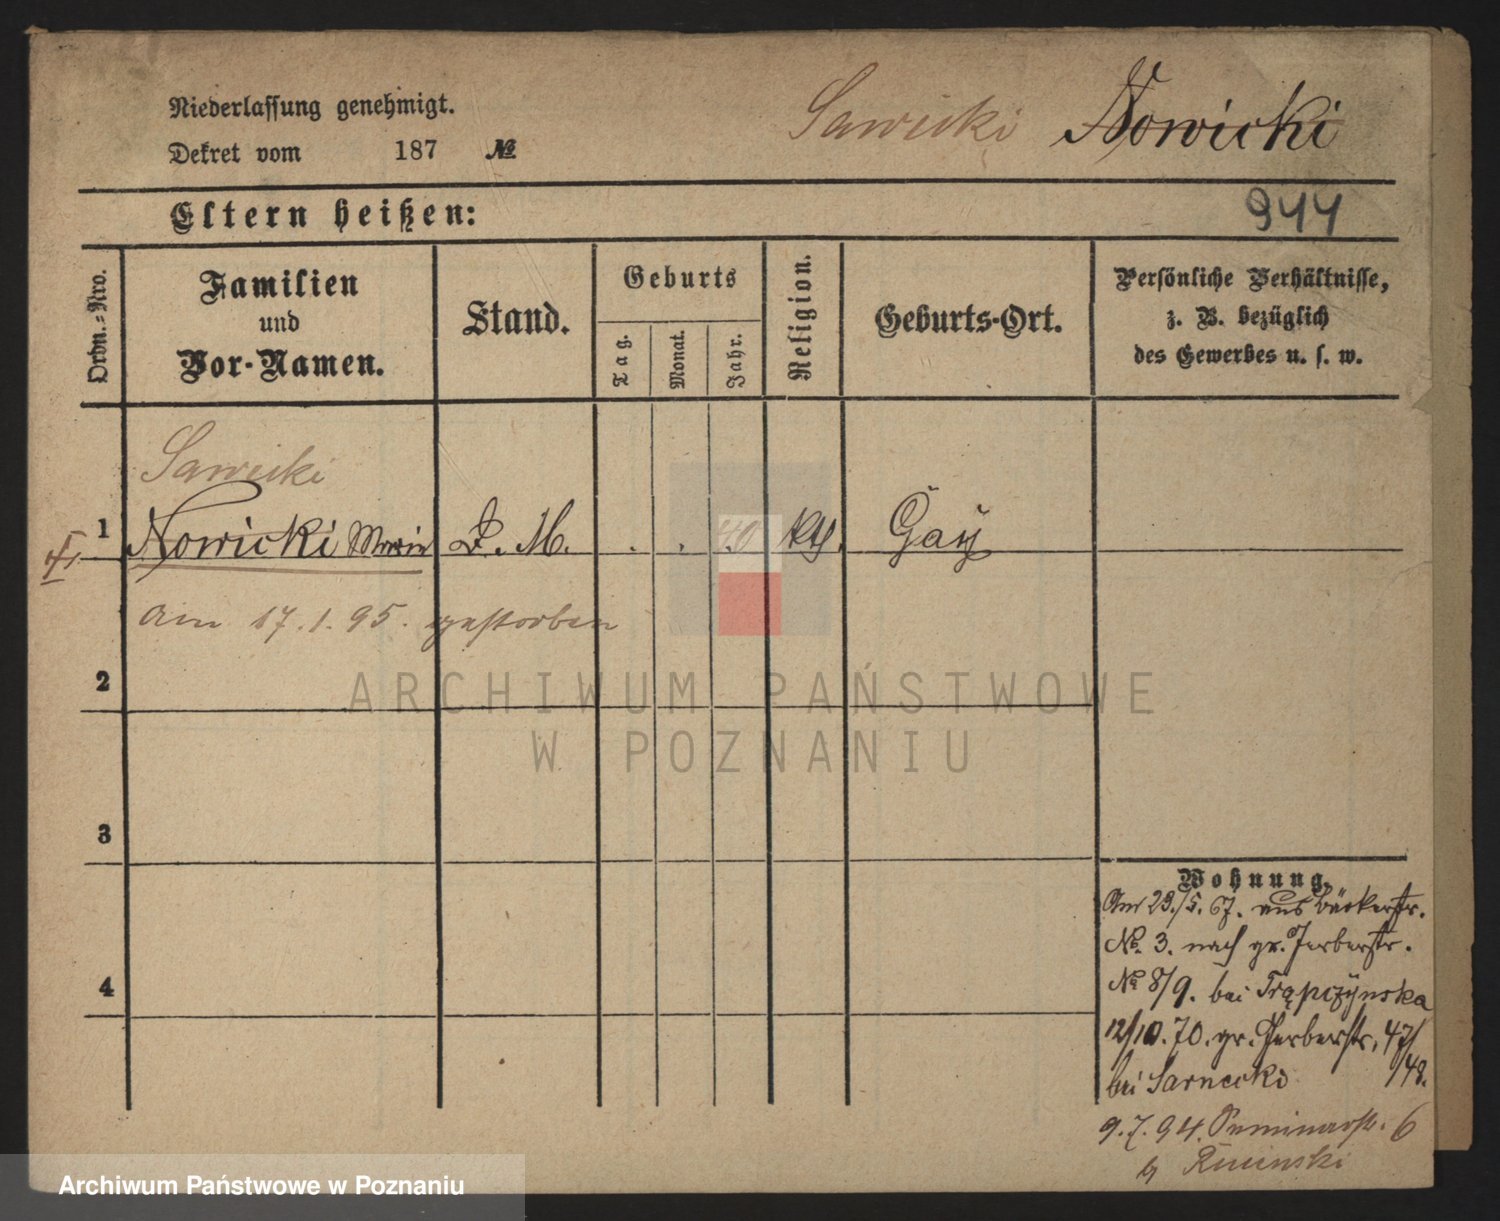 Niederlassung genehmigt.
Sawicki Nowicki
Dekret vom 187 №
Eltern heißen:
944
Ordn.-Nro.
Familien
und
Vor-Namen.
Stand.
Geburts
Tag.
Monat.
Jahr.
Religion.
Geburts-Ort.
Persönliche Verhältnisse,
z. B. bezüglich
des Gewerbes u. s. w.
Sawicki
1 Nowicki D. M. . . 40 kth. Gay
am 17.1.95. gestorben
2
3
4
Wohnung.
Am 23./5. 67. aus Bäckerstr.
No. 3. nach gr. Gerberstr.
No 8/9. bei Trąpczynska
12/10.70. gr. Gerberstr. 47/
/48.
bei Sarnecki
9.7.94. Seminarstr. 6
b
ARCHIWUM PAŃSTWOWE
W POZNANIU
Archiwum Państwowe w Poznaniu